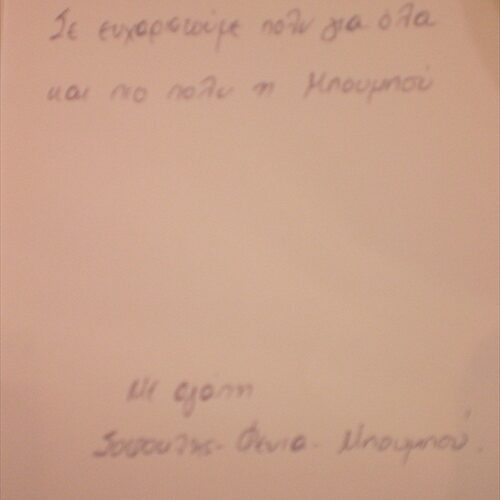 Σε ευχαριστούμε πολυ για όλα
και πιο πολυ η Μπουμπού
Με αγάπη
Φένια - Μπουμπού.